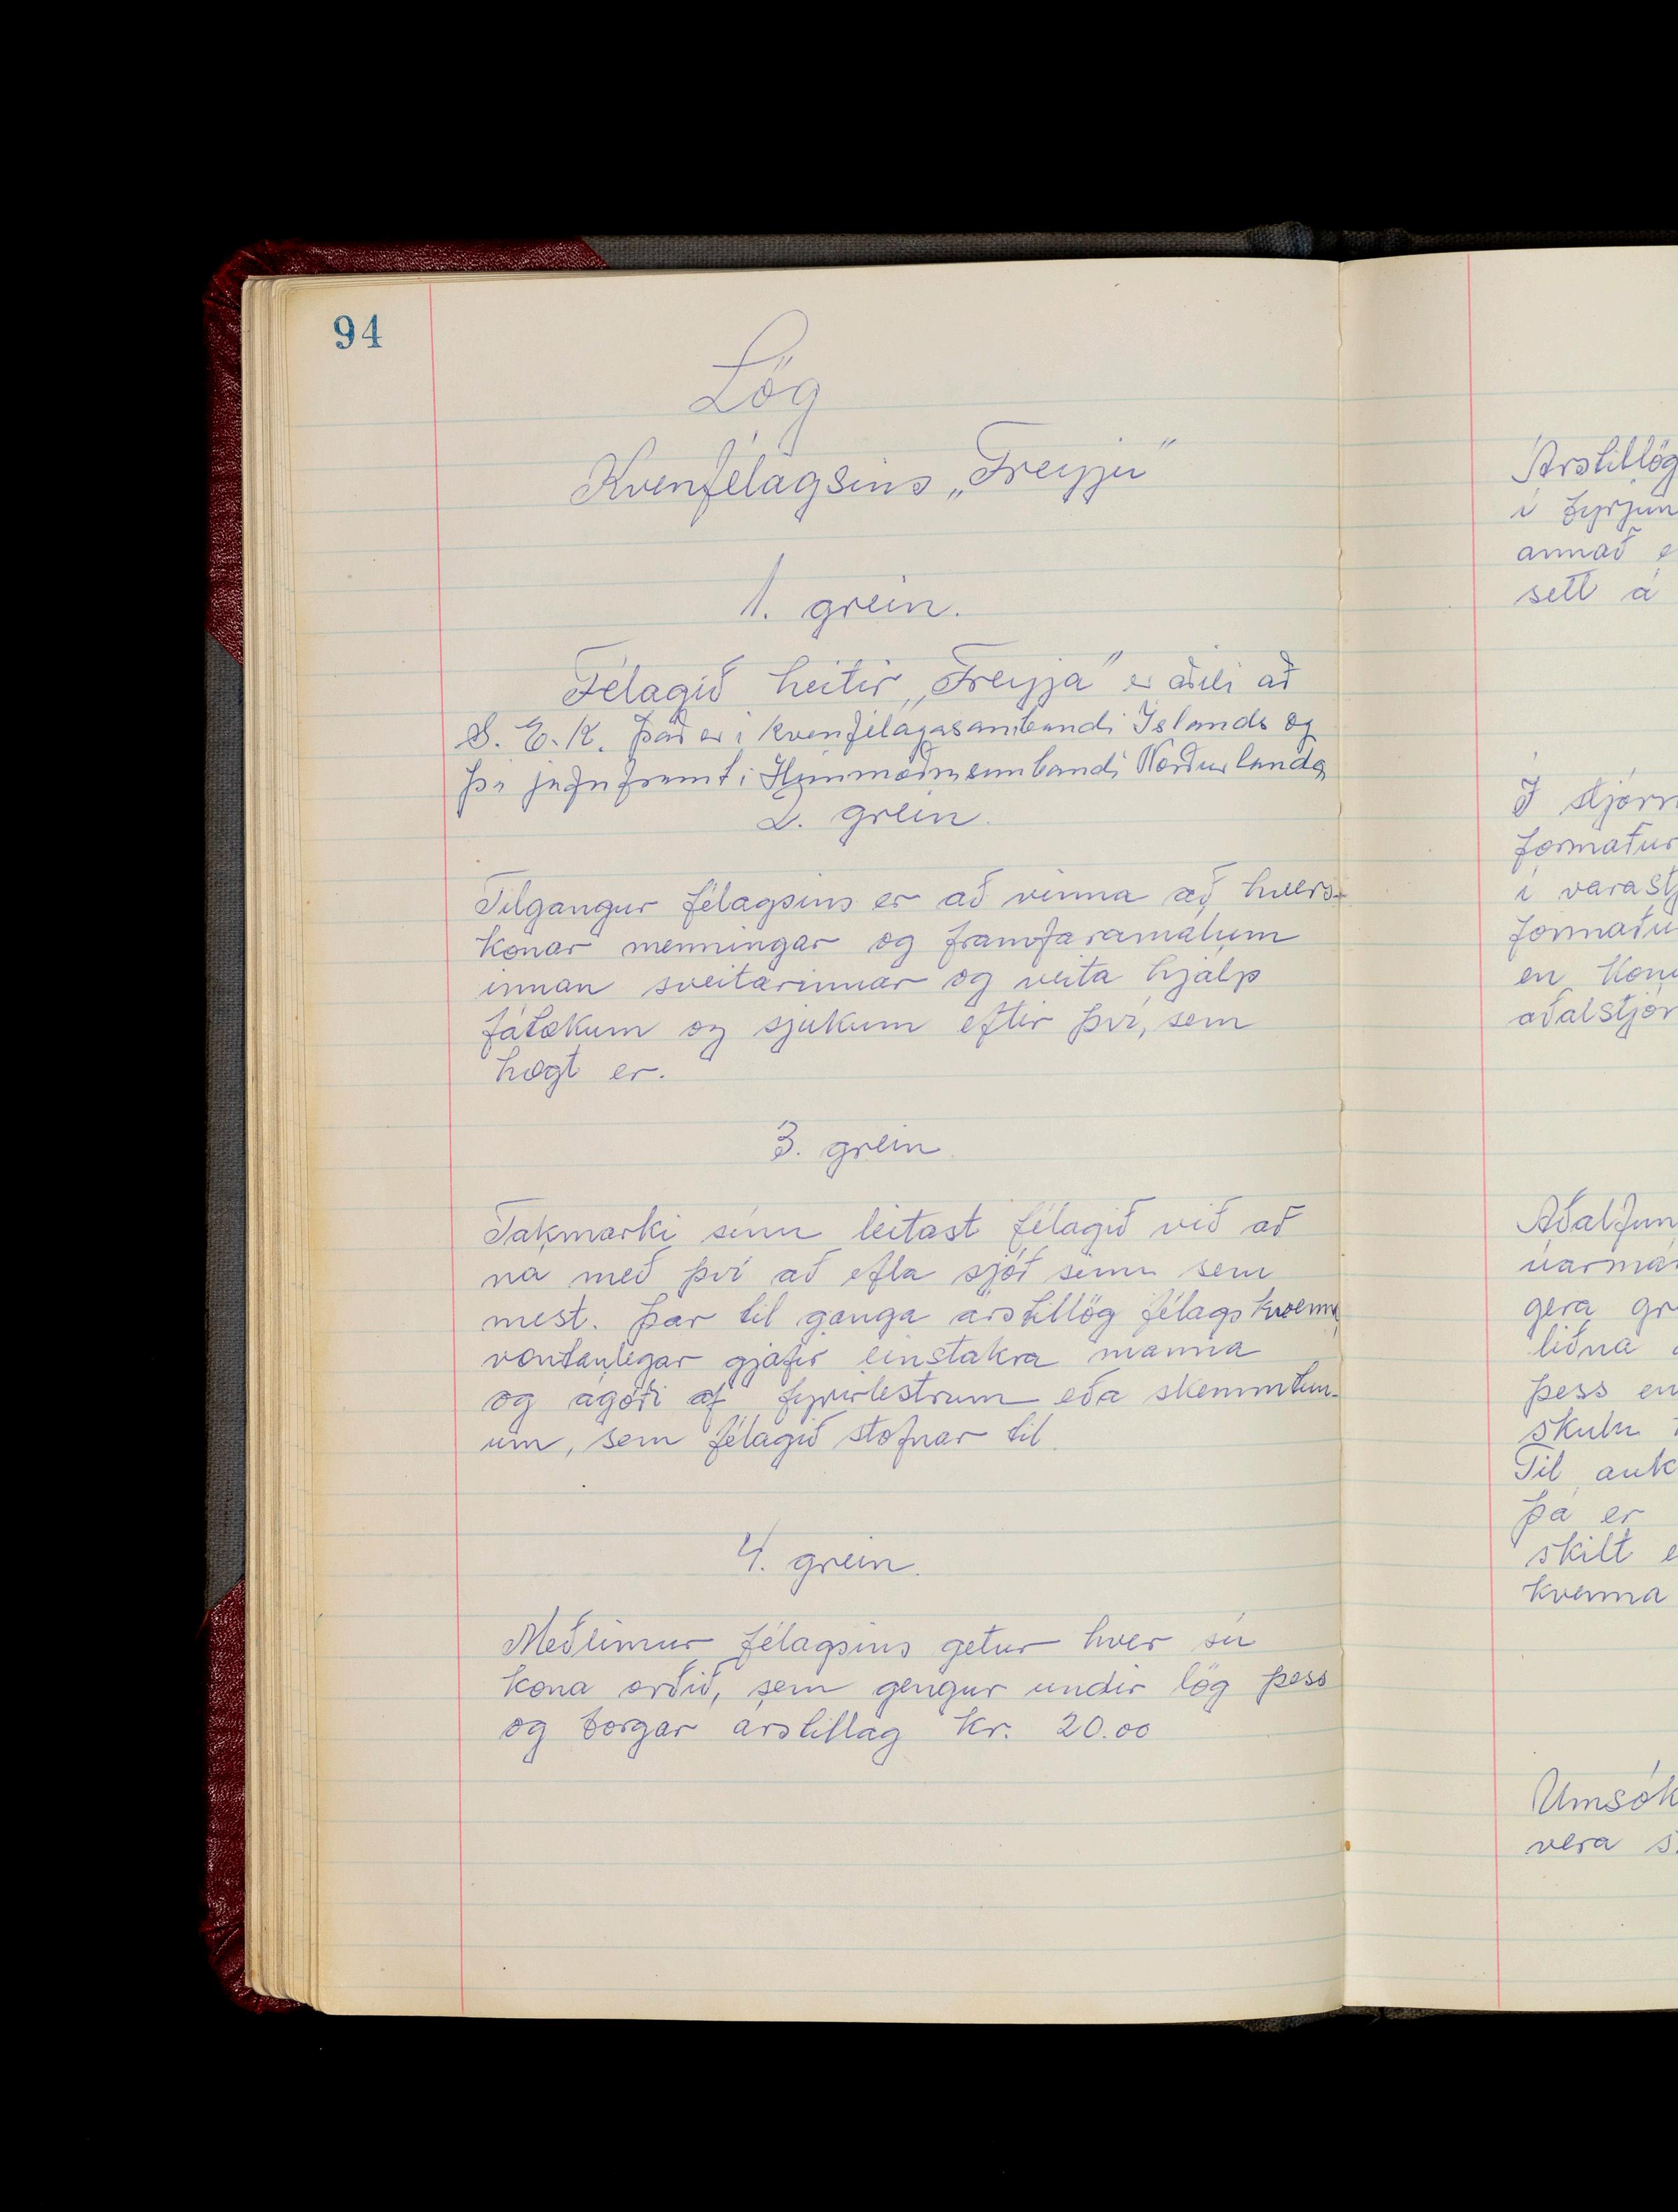 94
Lög
Kvenfélagsins „Freyju"
1. grein.
Félagið heitir „Freyja" er aðili að
S. E. K. Það er í Kvenfélagasambandi Íslands og
þr jafnframt í Húsmæðrasambandi Norðurlanda
2. grein.
Tilgangur félagsins er að vinna að hvers-
konar menningar og framfaramálum
innan sveitarinnar og veita hjálp
fátækum og sjúkum eftir því, sem
hægt er.
3. grein.
Takmarki sínu leitast félagið við að
ná með því að efla sjóð sinn sem
mest. Þar til ganga árstillög félagskvenna
væntanlegar gjafir einstakra manna
og ágóði af fyrirlestrum eða skemmtun-
um, sem félagið stofnar til.
4. grein.
Meðlimur félagsins getur hver sú
kona orðið, sem gengur undir lög þess
og borgar árstillag kr. 20.00
Árstillög
í byrjun
annað e
sett á
Í stjórn
formaður
í varastj
formaðu
en kon
aðalstjór
Aðalfun
úarmán
gera gr
liðna
þess en
skulu
Til auk
þá er
skilt e
kvenna
Umsók
vera s